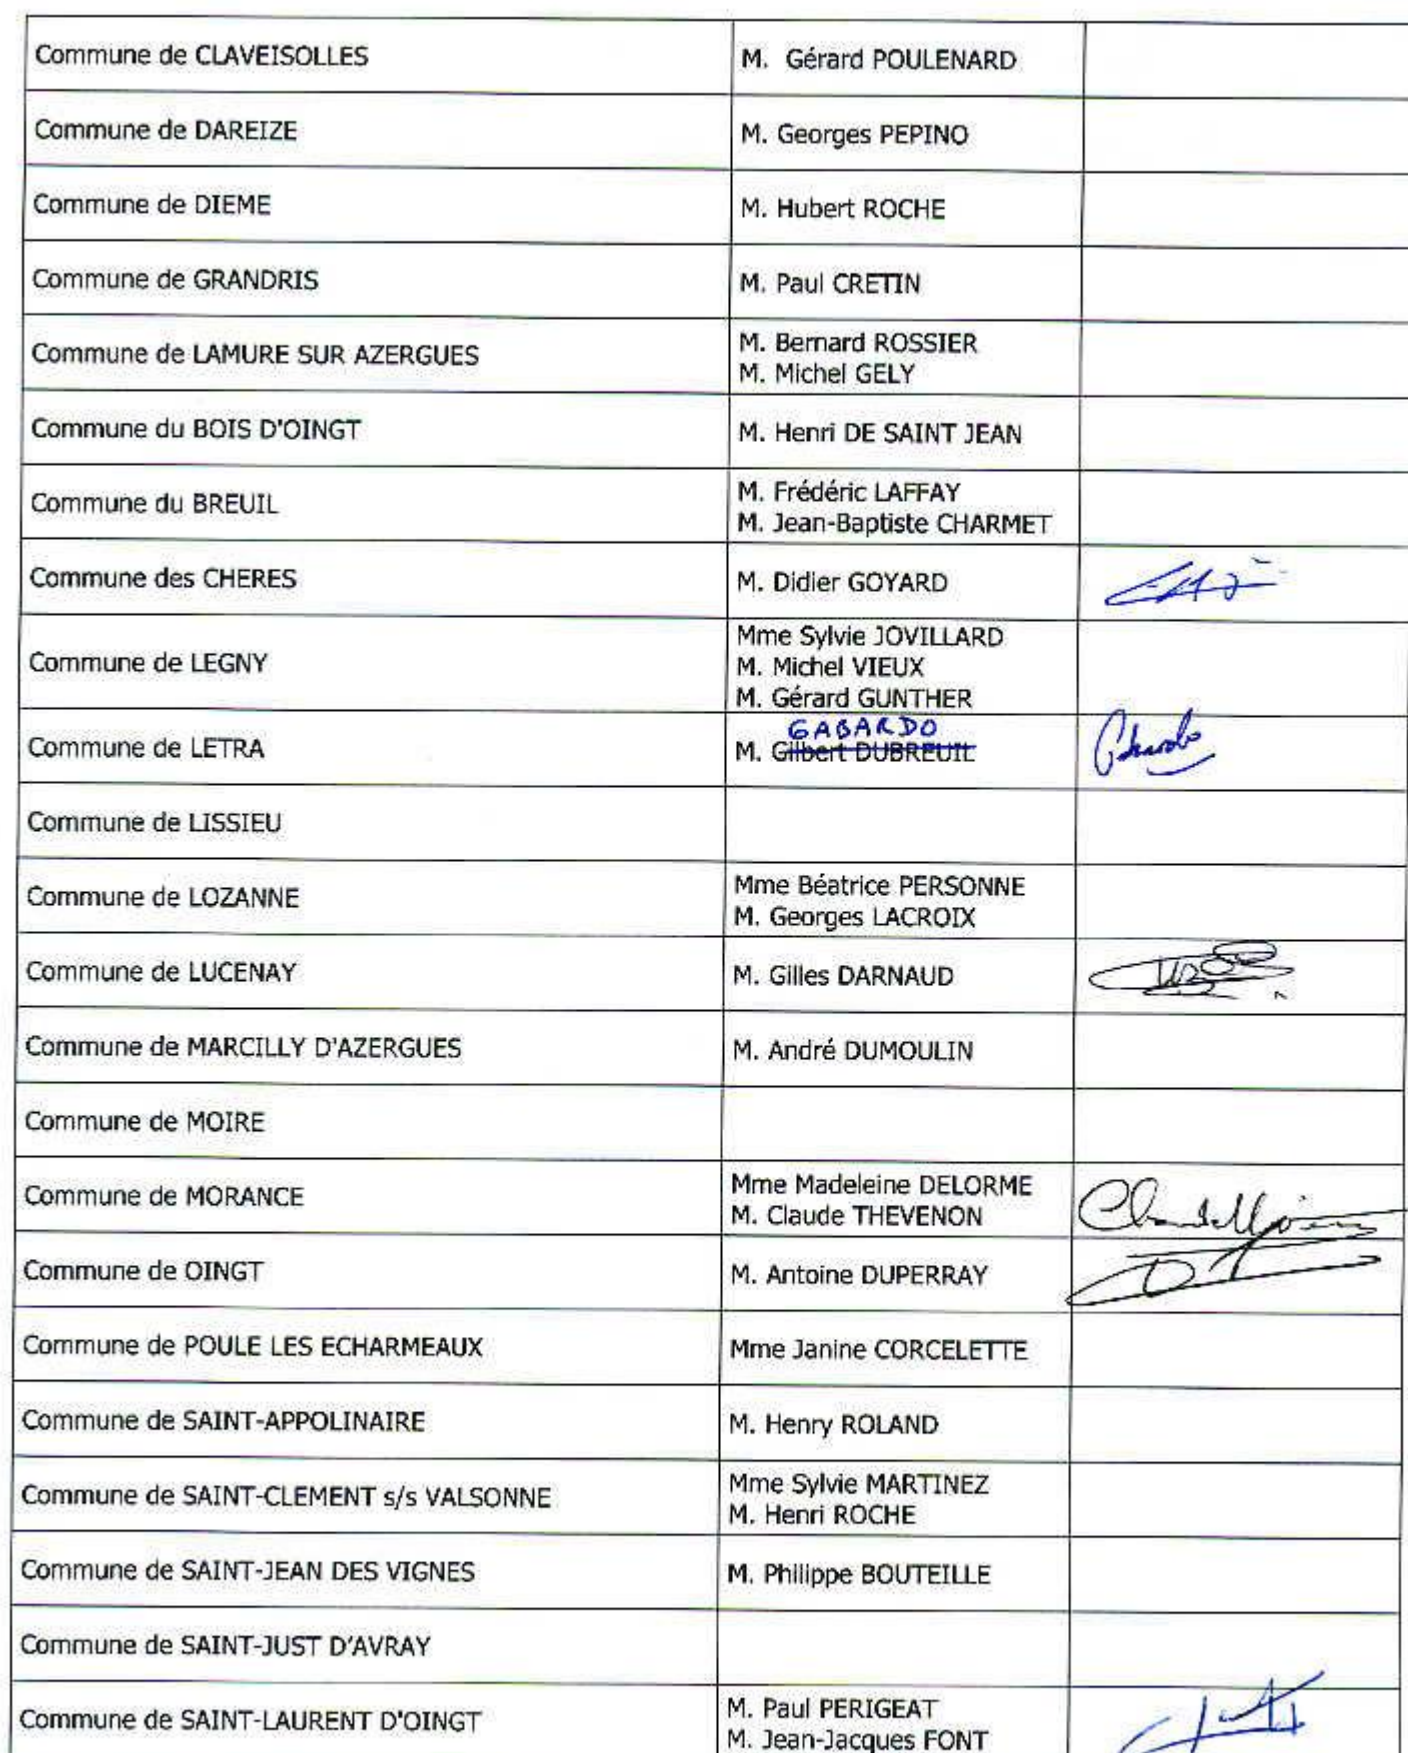 Commune de CLAVEISOLLES
M. Gérard POULENARD
Commune de DAREIZE
M. Georges PEPINO
Commune de DIEME
M. Hubert ROCHE
Commune de GRANDRIS
M. Paul CRETIN
Commune de LAMURE SUR AZERGUES
M. Bernard ROSSIER
M. Michel GELY
Commune du BOIS D'OINGT
M. Henri DE SAINT JEAN
Commune du BREUIL
M. Frédéric LAFFAY
M. Jean-Baptiste CHARMET
Commune des CHERES
M. Didier GOYARD
Commune de LEGNY
Mme Sylvie JOVILLARD
M. Michel VIEUX
M. Gérard GUNTHER
Commune de LETRA
GABARDO
M. Gilbert DUBREUIL
Commune de LISSIEU
Commune de LOZANNE
Mme Béatrice PERSONNE
M. Georges LACROIX
Commune de LUCENAY
M. Gilles DARNAUD
Commune de MARCILLY D'AZERGUES
M. André DUMOULIN
Commune de MOIRE
Commune de MORANCE
Mme Madeleine DELORME
M. Claude THEVENON
Commune de OINGT
M. Antoine DUPERRAY
Commune de POULE LES ECHARMEAUX
Mme Janine CORCELETTE
Commune de SAINT-APPOLINAIRE
M. Henry ROLAND
Commune de SAINT-CLEMENT s/s VALSONNE
Mme Sylvie MARTINEZ
M. Henri ROCHE
Commune de SAINT-JEAN DES VIGNES
M. Philippe BOUTEILLE
Commune de SAINT-JUST D'AVRAY
Commune de SAINT-LAURENT D'OINGT
M. Paul PERIGEAT
M. Jean-Jacques FONT